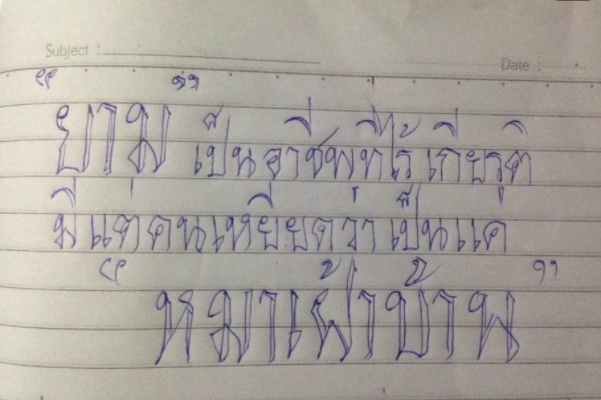 Subject :
Date :
"ยาม" เป็นอาชีพที่ไร้เกียรติ
มีแต่คนเหยียดว่าเป็นแค่
"หมาเฝ้าบ้าน"